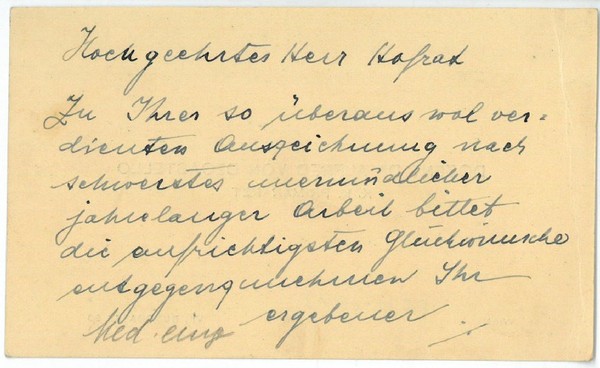 Hochgeehrtes Herr Hofrat
Zu Ihrer so überaus wol ver=
dienten Auszeichnung nach
schwerster unermüdlicher
jahrelanger Arbeit bittet
die aufrichtigsten Glückwünsche
entgegenzunehmen Ihr
ergebener
Med.